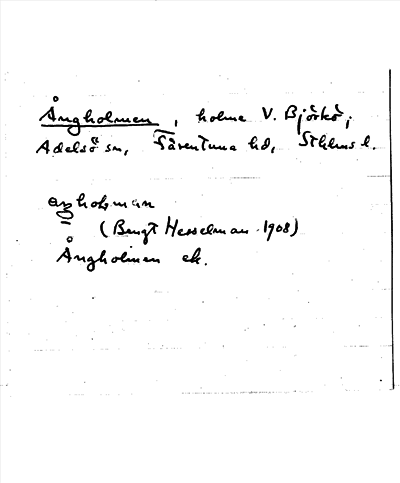 Ångholmen, holme V. Björkö,
Adelsö sn, Färentuna hd, Sthlms l.
aŋholman
(Bengt Hesselman 1908)
Ångholmen ek.